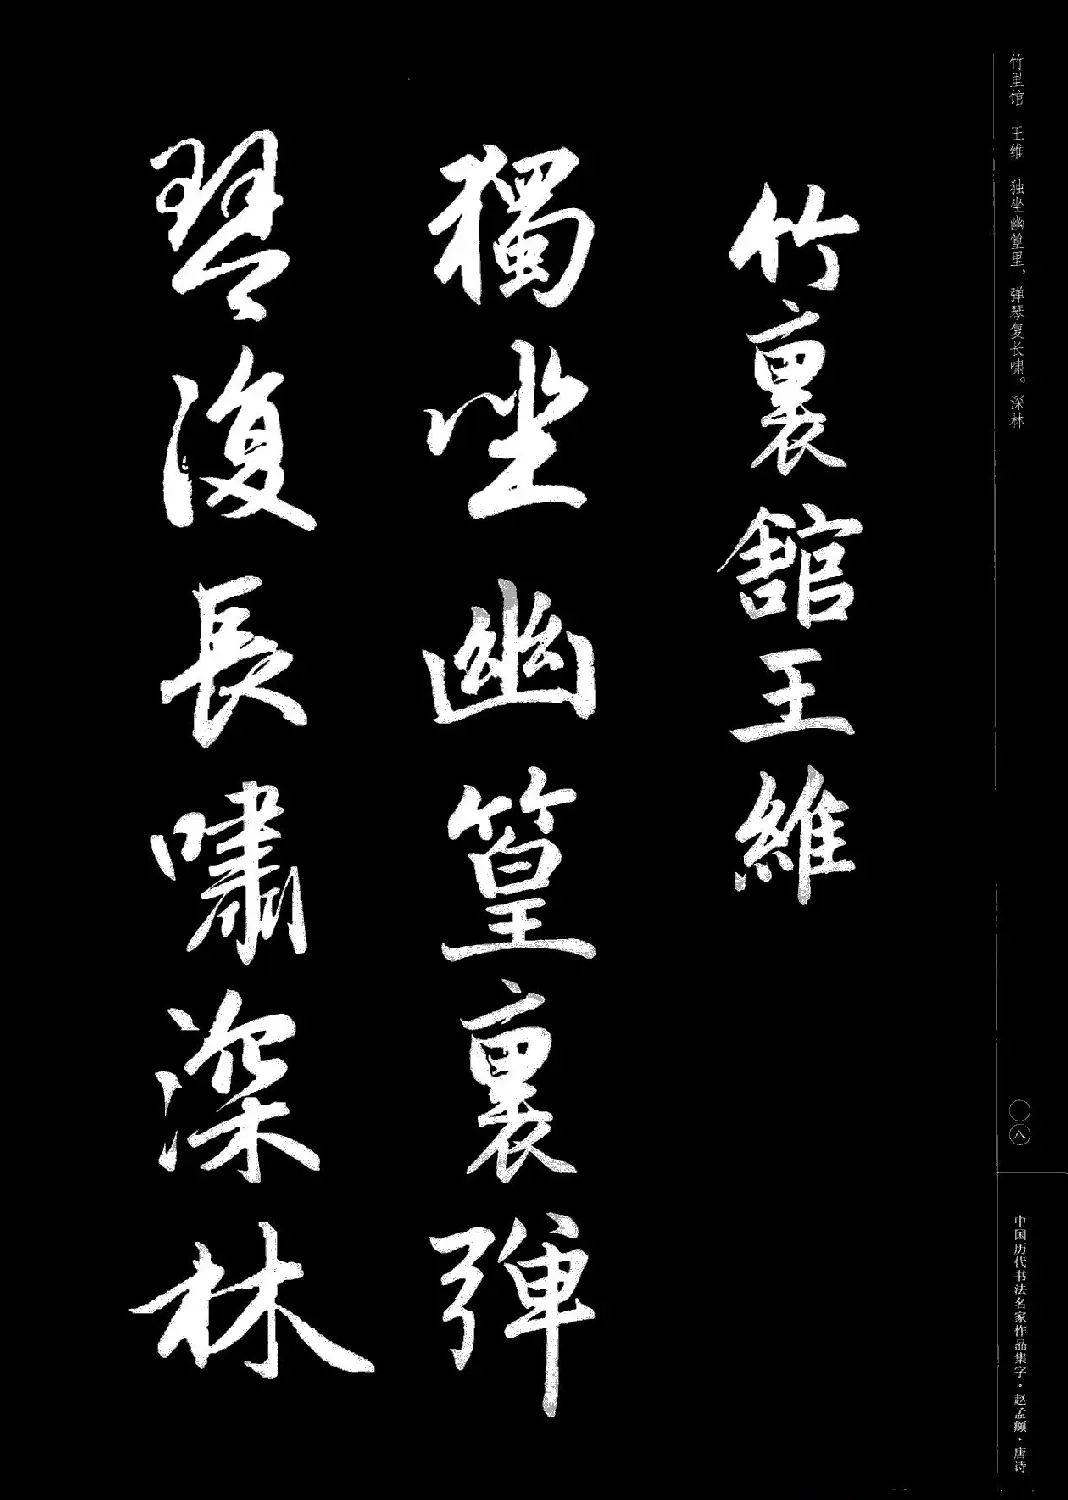 竹里馆　王维　独坐幽篁里、弹琴复长啸。深林
竹裏館王維
獨坐幽篁裏彈
琴復長嘯深林
〇八
中国历代书法名家作品集字·赵孟頫·唐诗